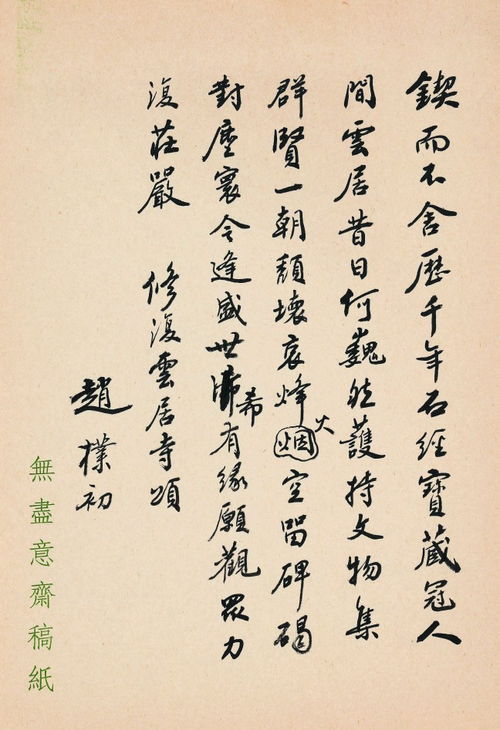 鍥而不舍歷千年石經寶藏冠人
間雲居昔日何巍然護持文物集
群賢一朝頹壞哀烽烟火空留碑碣
對塵寰今逢盛世希有緣願觀眾力
復莊嚴
修復雲居寺頌
趙樸初
無盡意齋稿紙